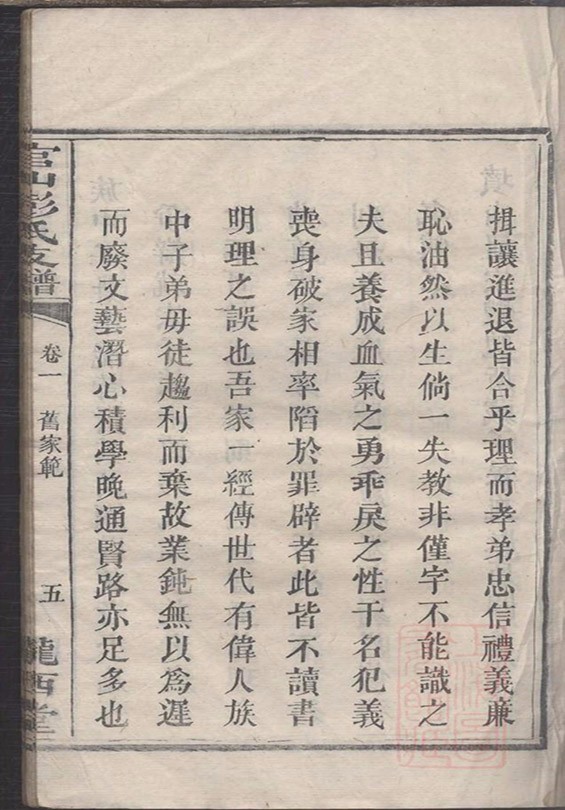 揖讓進退皆合乎理而孝弟忠信禮義廉
恥油然以生倘一失教非僅字不能識之
夫且養成血氣之勇乖戾之性干名犯義
喪身破家相率陷於罪辟者此皆不讀書
明理之誤也吾家一經傳世代有偉人族
中子弟毋徒趨利而棄故業鈍無以爲遲
而廢文藝潛心積學晚通賢路亦足多也
官山彭氏支譜
卷一 舊家範
五
隴西堂